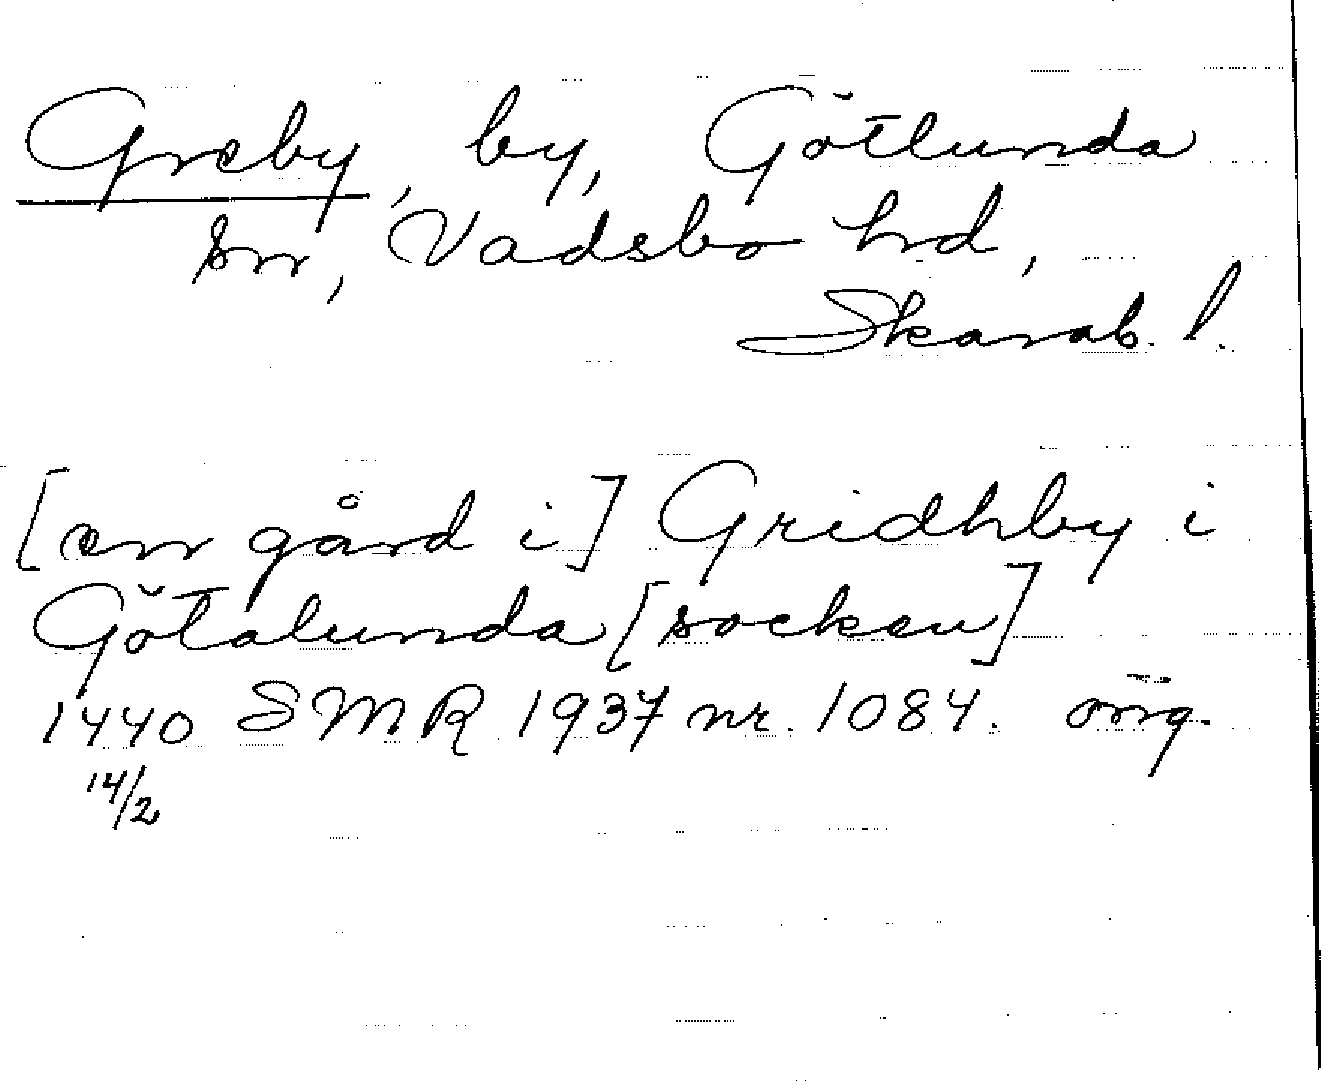 Greby, by, Götlunda
sn, Vadsbo hd,
Skarab. l.
[en gård i] Gridhby i
Götalunda [socken]
1440 SMR 1937 nr. 1084. orig.
14/2